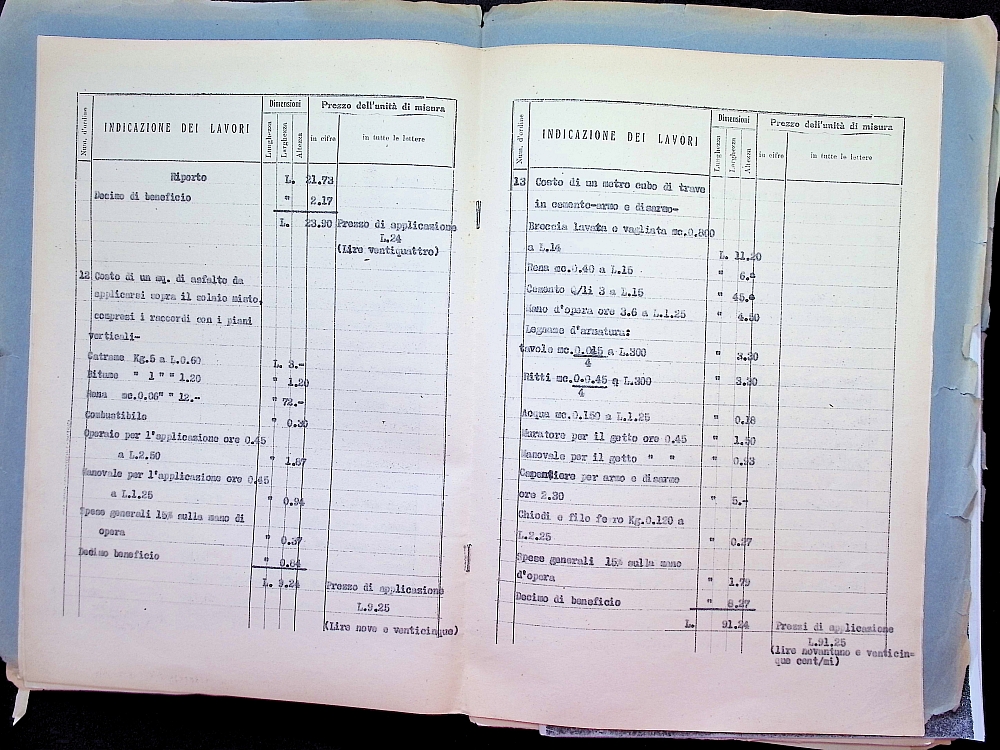 Num. d'ordine
INDICAZIONE DEI LAVORI
Dimensioni
Lunghezza
Larghezza
Altezza
Prezzo dell'unità di misura
in cifre
in tutte le lettere
Riporto L. 21.73
Decimo di beneficio " 2.17
L. 23.90 Prezzo di applicazione
L.24
(Lire ventiquattro)
12 Costo di un mq. di asfalto da
applicarsi sopra il solaio misto,
compresi i raccordi con i piani
verticali-
Catrame Kg.5 a L.0.60 L. 3.-
Bitume " 1 " " 1.20 " 1.20
Rena mc.0.06" " 12.- " 72.-
Combustibile " 0.30
Operaio per l'applicazione ore 0.45
a L.2.50 " 1.87
Manovale per l'applicazione ore 0.45
a L.1.25 " 0.94
Spese generali 15% sulla mano di
opera " 0.37
Decimo beneficio " 0.84
L. 9.24 Prezzo di applicazione
L.9.25
(Lire nove e venticinque)
Num. d'ordine
INDICAZIONE DEI LAVORI
Dimensioni
Lunghezza
Larghezza
Altezza
Prezzo dell'unità di misura
in cifre
in tutte le lettere
13 Costo di un metro cubo di trave
in cemento-armo e disarmo-
Breccia lavata e vagliata mc.0.800
a L.14 L. 11.20
Rena mc.0.40 a L.15 " 6.-
Cemento Q/li 3 a L.15 " 45.-
Mano d'opera ore 3.6 a L.1.25 " 4.50
Legname d'armatura:
tavole mc.0.015 a L.300 " 3.30
4
Ritti mc.0.0.45 a L.300 " 3.30
4
Acqua mc.0.150 a L.1.25 " 0.18
Muratore per il getto ore 0.45 " 1.50
Manovale per il getto " " " 0.93
Carpentiere per armo e disarmo
ore 2.30 " 5.-
Chiodi e filo fe ro Kg.0.120 a
L.2.25 " 0.27
Spese generali 15% sulla mano
d'opera " 1.79
Decimo di beneficio " 8.27
L. 91.24 Prezzi di applicazione
L.91.25
(lire novantuno e venticin=
que cent/mi)